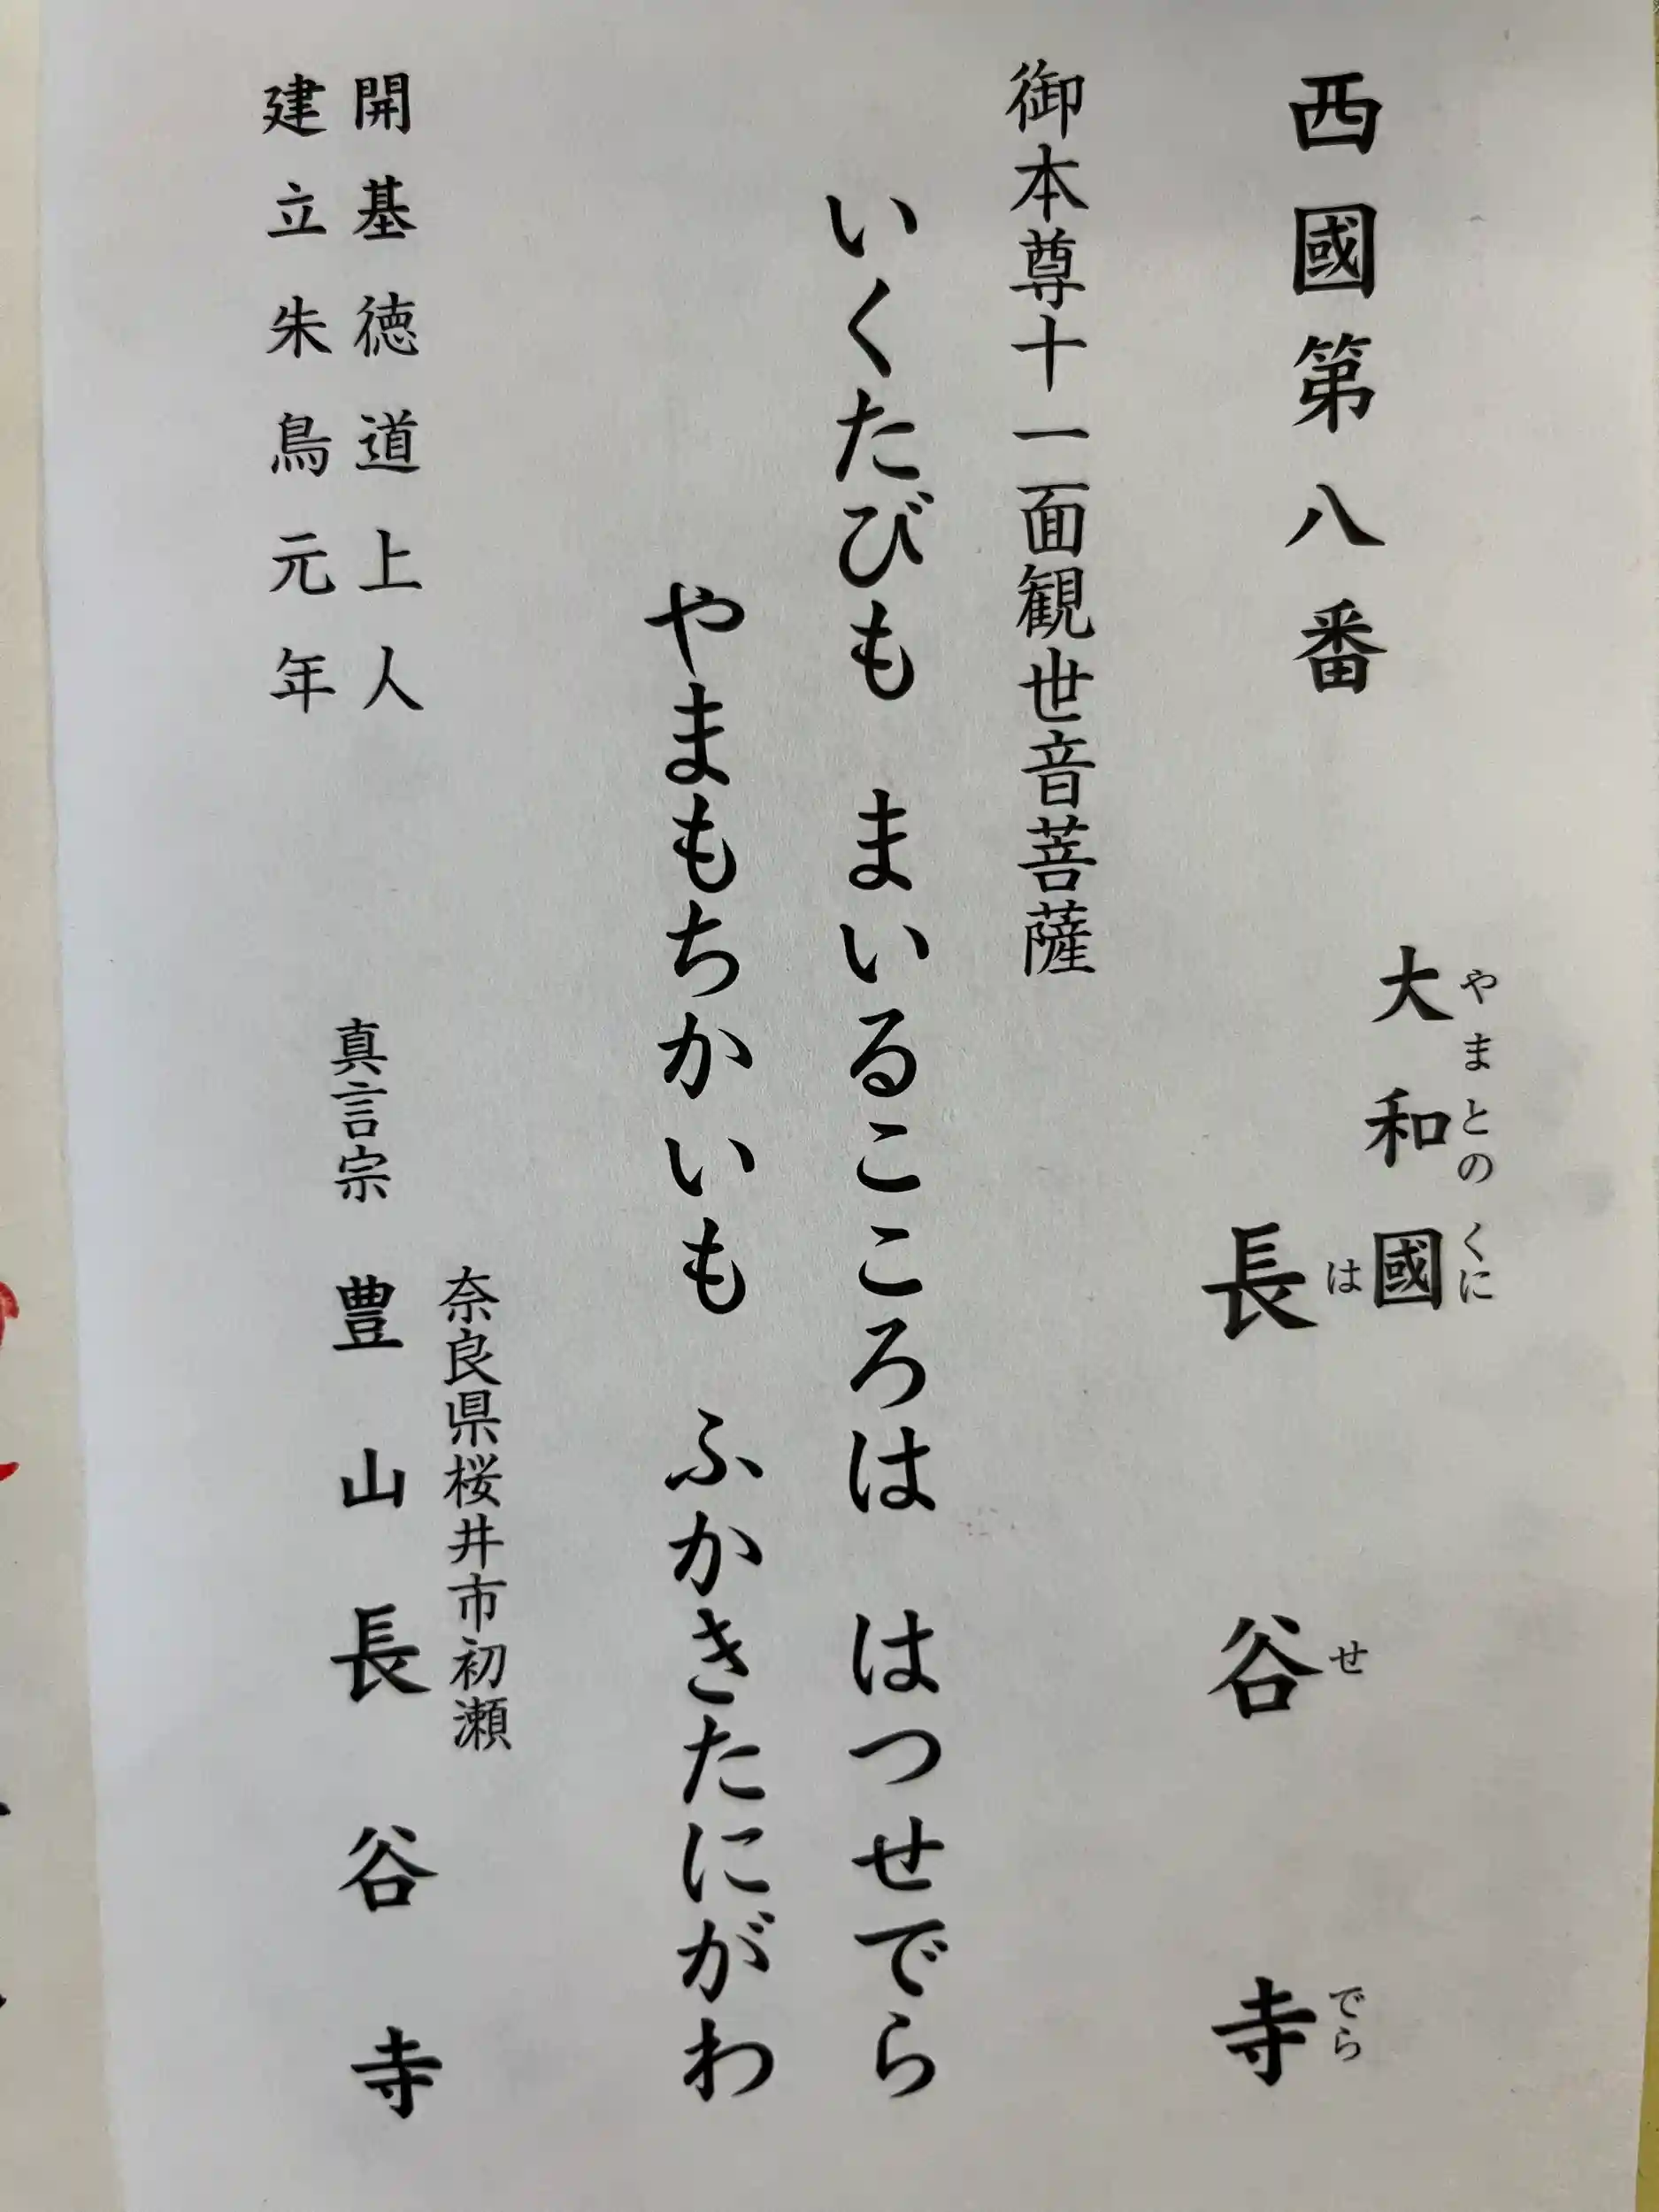 西國第八番
大和國
やまとのくに
長谷寺
はせでら
御本尊十一面観世音菩薩
いくたびも　まいるこころは　はつせでら
やまもちかいも　ふかきたにがわ
開基徳道上人
建立朱鳥元年
奈良県桜井市初瀬
真言宗　豊山長谷寺